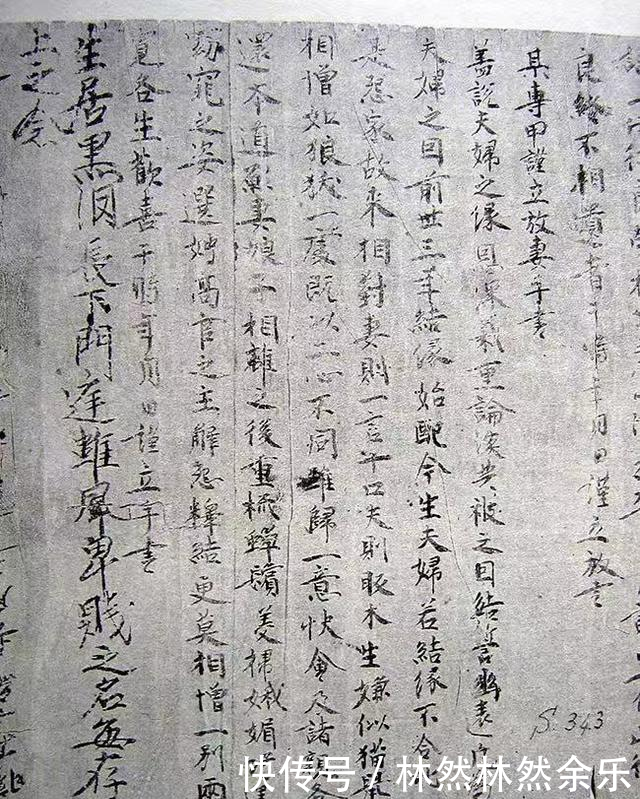 良終不相遺者于時年月日謹立放書
某專甲謹立放妻手書
蓋說夫婦之緣恩深義重論談共被之因結誓幽遠
夫婦之因前世三年結緣始配今生夫婦若結緣不合
是怨家故來相對妻則一言十口夫則販木生嫌似猫鼠
相憎如狼狄一處既以二心不同難歸一意快會及諸親各
還本道願妻娘子相離之後重梳蟬鬢美掃娥媚
窈窕之姿選娉高官之主解怨釋結更莫相憎一別兩
寬各生歡喜于時年月日謹立手書
生居黑 長下門庭雖 卑賤之名每存
上之念
S.343
快传号 / 林然林然余乐